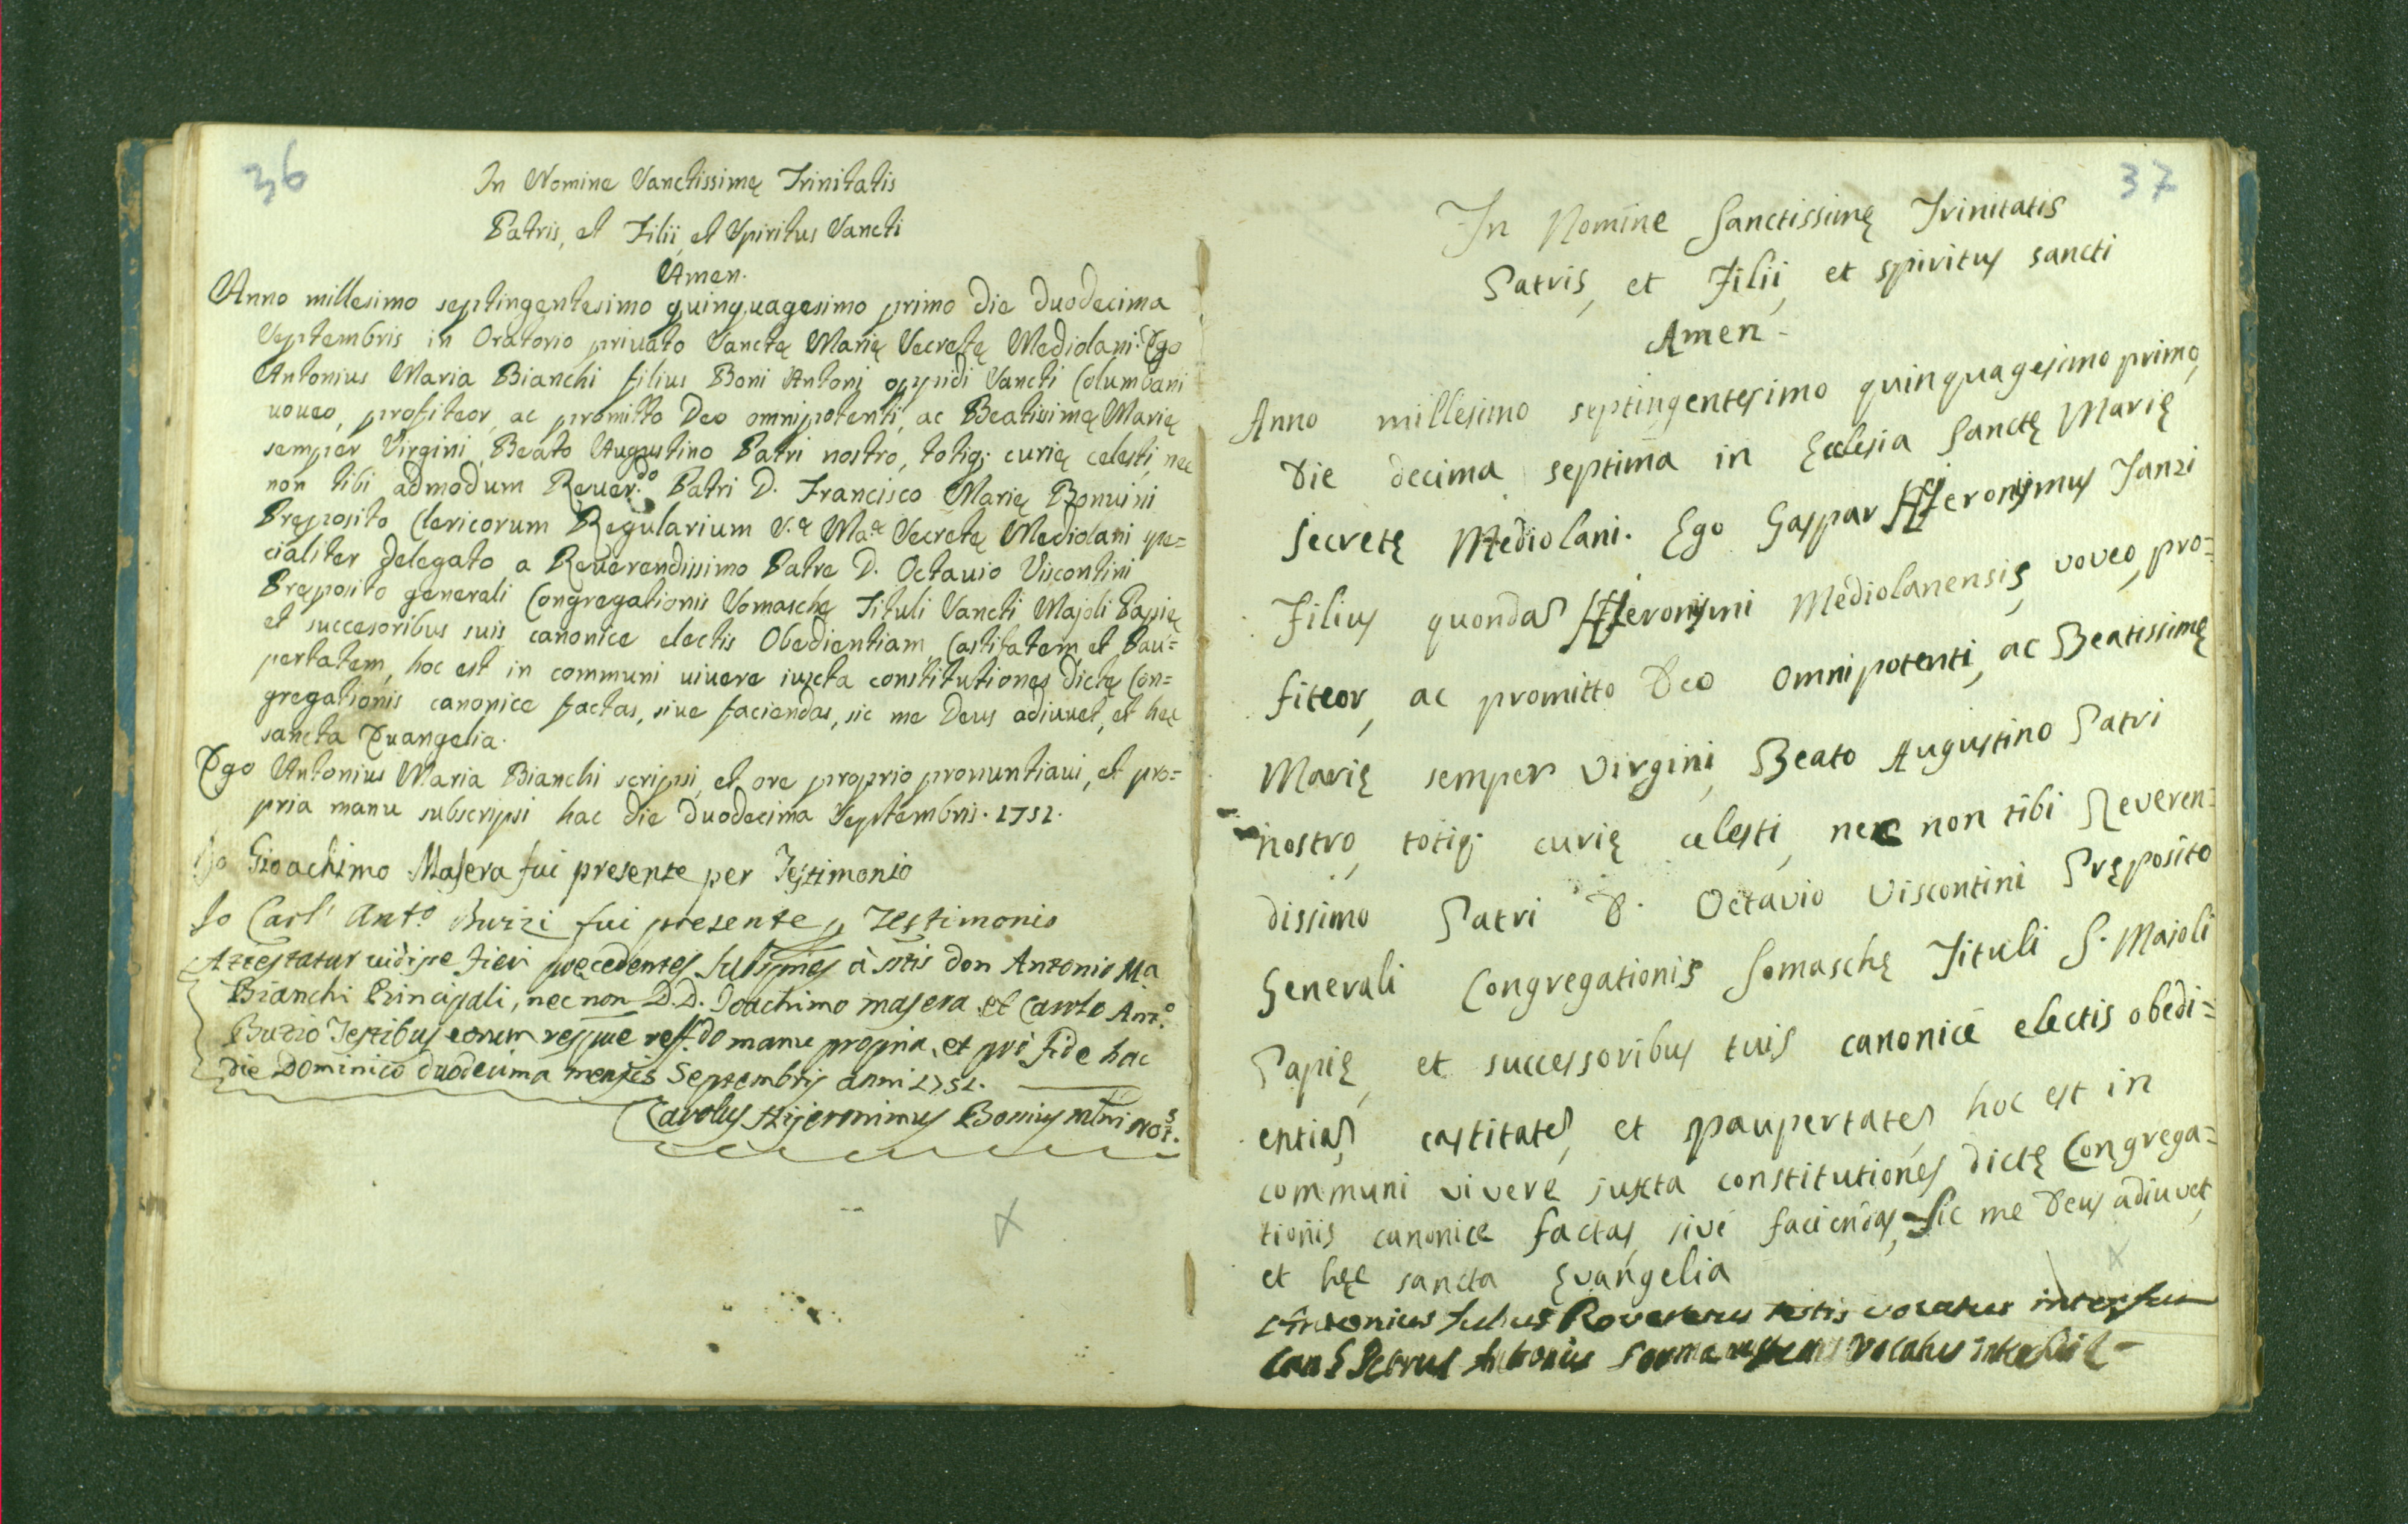 36
In Nomine Sanctissimę Trinitatis
Patris, et Filii, et Spiritus Sancti
Amen.
Anno millesimo septingentesimo quinquagesimo primo die duodecima
Septembris in Oratorio privato Sanctę Marię Secretę Mediolani. Ego
Antonius Maria Bianchi filius Boni Antoni oppidi Sancti Columbani
voveo, profiteor, ac promitto Deo omnipotenti, ac Beatissimę Marię
semper Virgini, Beato Augustino Patri nostro, totiq; curię celesti, nec
non tibi admodum Rever.do Patri D. Francisco Marię Bonvini
Pręposito Clericorum Regularium S.ę Ma.ę Secretę Mediolani spe=
cialiter delegato a Reverendissimo Patre D. Octavio Viscontini
Pręposito generali Congregationis Somaschę Tituli Sancti Majoli Papię
et succesoribus suis canonice electis Obedientiam, Castitatem, et Pau=
pertatem, hoc est in communi vivere iuxta constitutiones dictę Con=
gregationis canonice factas, sive faciendas, sic me Deus adiuvet, et hęc
sancta Evangelia.
Ego Antonius Maria Bianchi scripsi, et ore proprio pronuntiavi, et pro=
pria manu subscripsi hac die duodecima Septembris. 1751.
Io Gioachimo Masera fui presente per Testimonio
Io Carl' Ant.o Buzzi fui presente p Testimonio
Attestatur vidisse fieri precedentes à don Antonio Ma.
Bianchi Principali, nec non D.D. Joachimo masera et Carolo Ant.o
Buzio Testibus eorum manu propria, et fide hac
die Dominico duodecima mensis Septembris anni 1751.
Carolus Hijeronimus
37
In Nomine Sanctissimę Trinitatis
Patris, et Filii, et spiritus sancti
Amen
Anno millesimo septingentesimo quinquagesimo primo,
Die decima septima in Ecclesia Sanctę Marię
Secretę Mediolani. Ego Gaspar Hieronymus Janzi
Filius quondā Hieronymi Mediolanensis, voveo, pro=
fiteor, ac promitto Deo Omnipotenti, ac Beatissimę
Marię semper Virgini, Beato Augustino Patri
nostro, totiq; curię celesti, nec non tibi Reveren=
dissimo Patri D. Octavio Viscontini Pręposito
Generali Congregationis Somaschę Tituli S. Majoli
Papię, et successoribus tuis canonicè electis obedi=
entiā, castitatē, et paupertatē, hoc est in
communi vivere juxta constitutiones dictę Congrega=
tionis canonice factas, sive faciendas, Sic me Deus adiuvet,
et hęc sancta Evangelia
Antonius Julius testis vocatus interfui
Petrus Antonius vocatus interfui